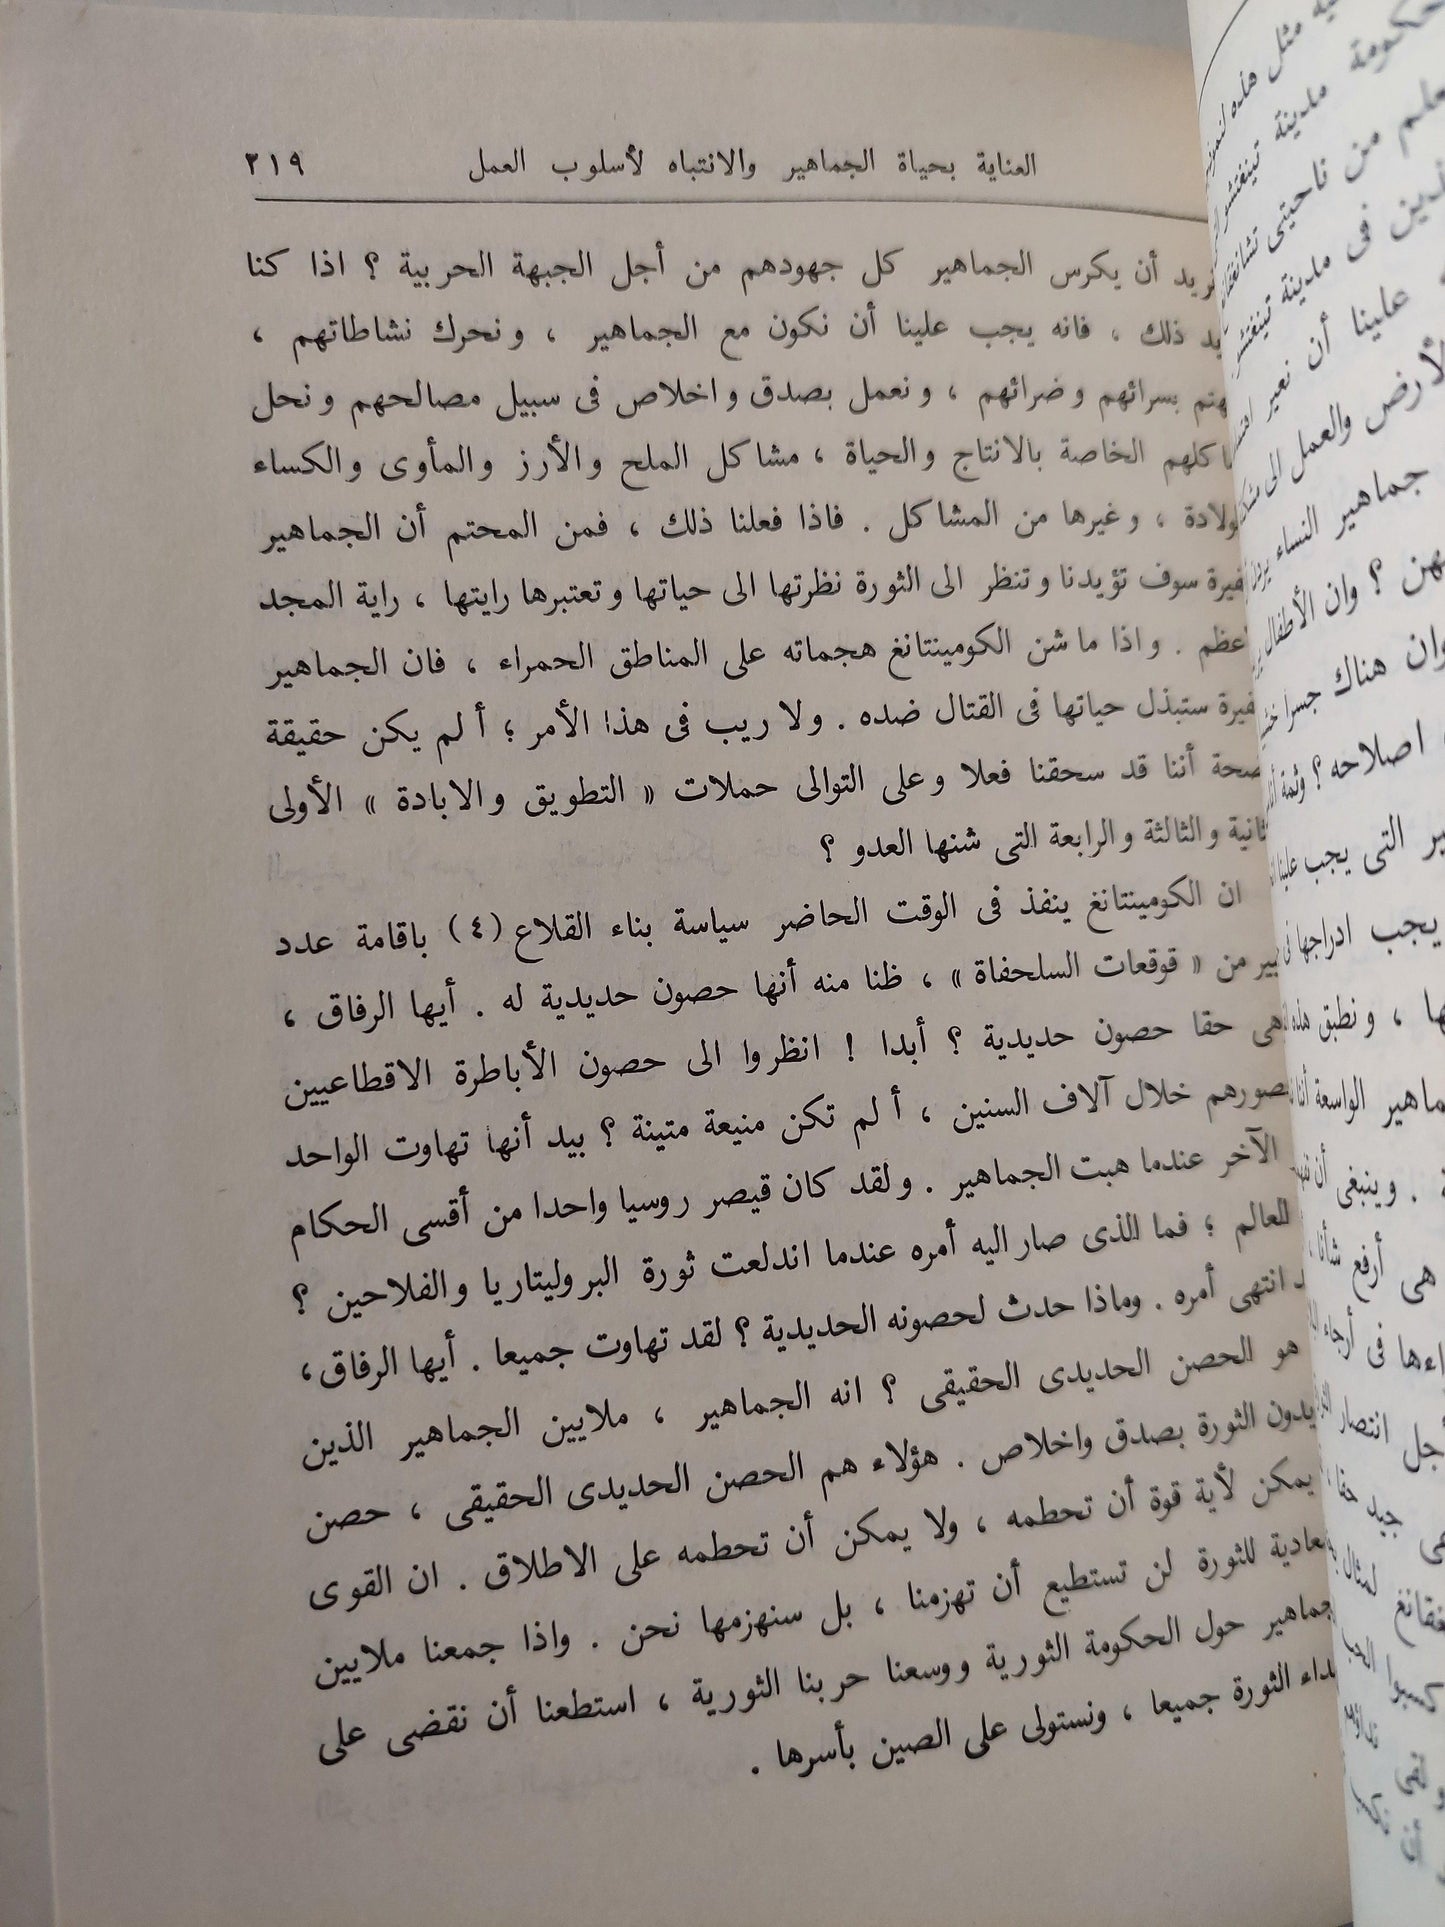 العناية بحياة الجماهير والانتباه لأسلوب العمل ٢١٩
أن يكرس الجماهير كل جهودهم من أجل الجبهة الحربية ؟ اذا كنا
ذلك ، فانه يجب علينا أن نكون مع الجماهير ، ونحرك نشاطاتهم ،
بسرائهم وضرائهم ، ونعمل بصدق واخلاص فى سبيل مصالحهم ونحل
الخاصة بالانتاج والحياة ، مشاكل الملح والأرز والمأوى والكساء
، وغيرها من المشاكل . فاذا فعلنا ذلك ، فمن المحتم أن الجماهير
سوف تؤيدنا وتنظر الى الثورة نظرتها الى حياتها وتعتبرها رايتها ، راية المجد
. واذا ما شن الكومينتانغ هجماته على المناطق الحمراء ، فان الجماهير
ستبذل حياتها فى القتال ضده . ولا ريب فى هذا الأمر ؛ ألم يكن حقيقة
أننا قد سحقنا فعلا وعلى التوالى حملات « التطويق والابادة » الأولى
والثالثة والرابعة التى شنها العدو ؟
ان الكومينتانغ ينفذ فى الوقت الحاضر سياسة بناء القلاع (٤) باقامة عدد
من « قوقعات السلحفاة » ، ظنا منه أنها حصون حديدية له . أيها الرفاق ،
حقا حصون حديدية ؟ أبدا ! انظروا الى حصون الأباطرة الاقطاعيين
خلال آلاف السنين ، ألم تكن منيعة متينة ؟ بيد أنها تهاوت الواحد
الآخر عندما هبت الجماهير . ولقد كان قيصر روسيا واحدا من أقسى الحكام
للعالم ؛ فما الذى صار اليه أمره عندما اندلعت ثورة البروليتاريا والفلاحين ؟
انتهى أمره . وماذا حدث لحصونه الحديدية ؟ لقد تهاوت جميعا . أيها الرفاق،
هو الحصن الحديدى الحقيقى ؟ انه الجماهير ، ملايين الجماهير الذين
الثورة بصدق واخلاص . هؤلاء هم الحصن الحديدى الحقيقى ، حصن
يمكن لأية قوة أن تحطمه ، ولا يمكن أن تحطمه على الاطلاق . ان القوى
للثورة لن تستطيع أن تهزمنا ، بل سنهزمها نحن . واذا جمعنا ملايين
حول الحكومة الثورية ووسعنا حربنا الثورية ، استطعنا أن نقضى على
الثورة جميعا ، ونستولى على الصين بأسرها .
مثل هذه
مدينة
من ناحيتى
فى مدينة
علينا أن نعير
والعمل الى
جماهير النساء
؟ وان الأطفال
هناك جسرا
اصلاحه ؟ وثمة
التى يجب علينا
يجب ادراجها
، ونطبق هذه
الواسعة أننا
. وينبغى أن
هى أرفع شأنا
فى أرجاء
انتصار
جيد حقا